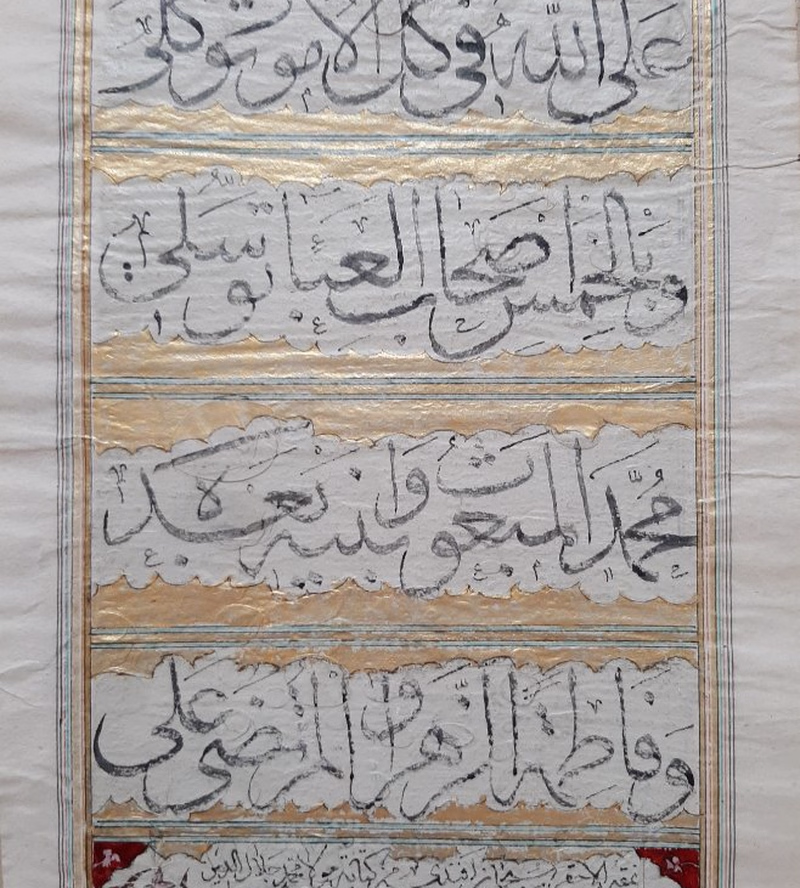 على الله في كل الأمور توكلي
وبالخمس أصحاب العباء توسلي
محمد المبعوث وابنيه بعده
وفاطمة الزهراء والمرتضى علي
نمقه الاحقر